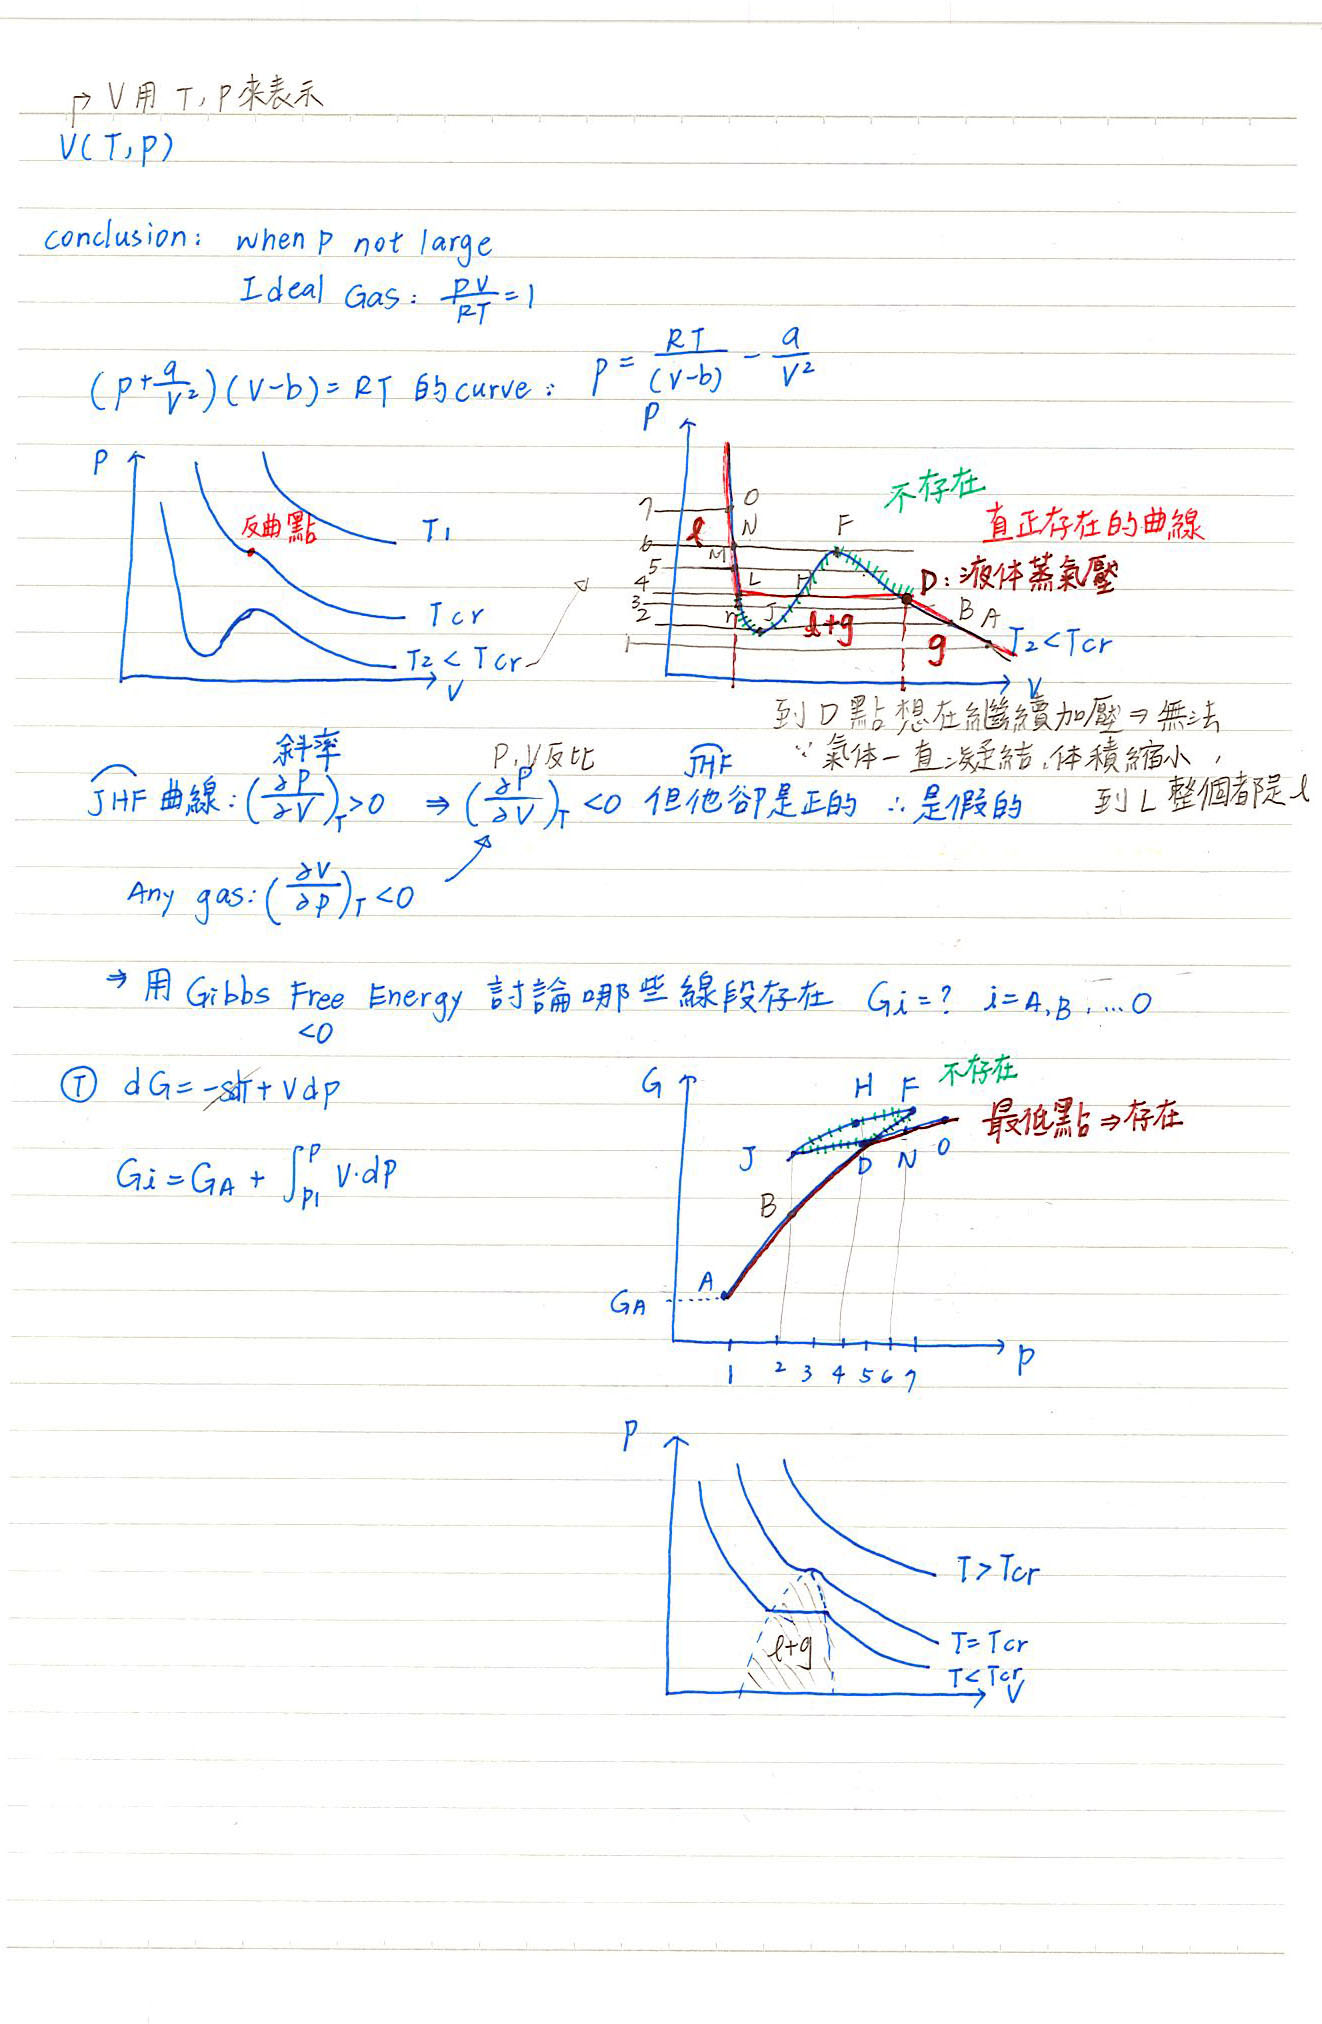 → V 用 T, P 來表示
V(T,P)
conclusion: when P not large
Ideal Gas: PV/RT = 1
(P+a/V²)(V-b) = RT 的 curve: P = RT/(V-b) - a/V²
P
反曲點
T1
Tcr
T2 < Tcr
V
P
不存在
真正存在的曲線
D: 液体蒸氣壓
7 6 5 4 3 2 1
O N M L J H F D B A
l
l+g
g
T2 < Tcr
V
到 D 點想在繼續加壓 ⇒ 無法
∵ 氣体一直凝結, 体積縮小,
到 L 整個都是 l
斜率
P, V 反比
JHF 曲線: (∂P/∂V)T > 0 ⇒ (∂P/∂V)T < 0 但他卻是正的 ∴ 是假的
JHF
Any gas: (∂V/∂P)T < 0
⇒ 用 Gibbs Free Energy 討論哪些線段存在 Gi = ? i = A, B, ... O
<0
Ⓣ dG = -SdT + Vdp
Gi = GA + ∫P1^P V·dP
G
H F 不存在
最低點 ⇒ 存在
J D N O
B
A
GA
1 2 3 4 5 6 7
P
P
T > Tcr
T = Tcr
T < Tcr
l+g
V